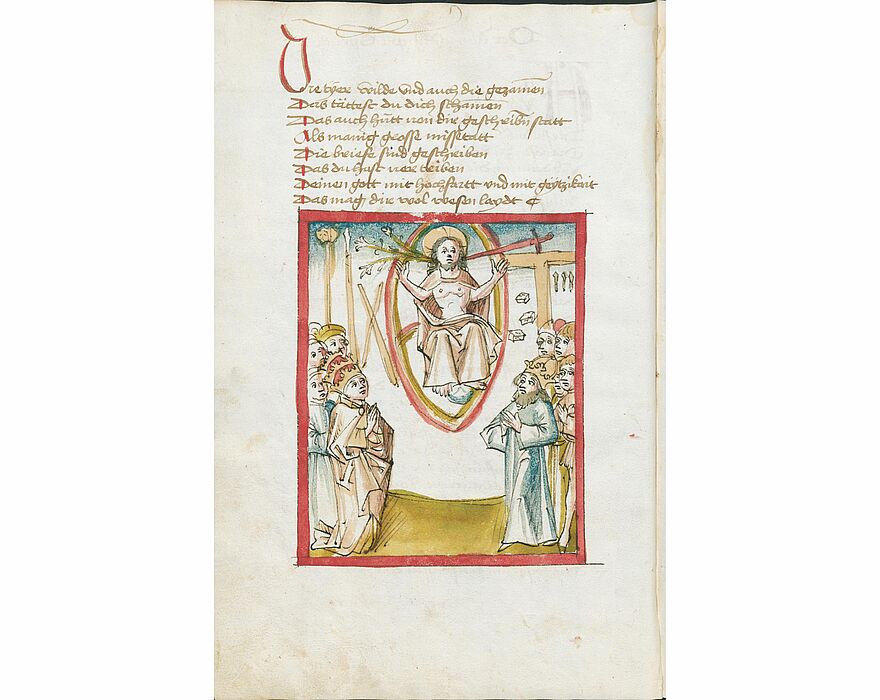 Die tyer wilde vnd auch die gezamen
Das tättest du dich schamen
Das auch hütt von dir geschriben statt
Als manig grosse missetatt
Die briefe sind geschriben
Das du hast vertriben
Deinen gott mit hochfartt vnd mit geytzikait
Das mag dir wol wesen laydt